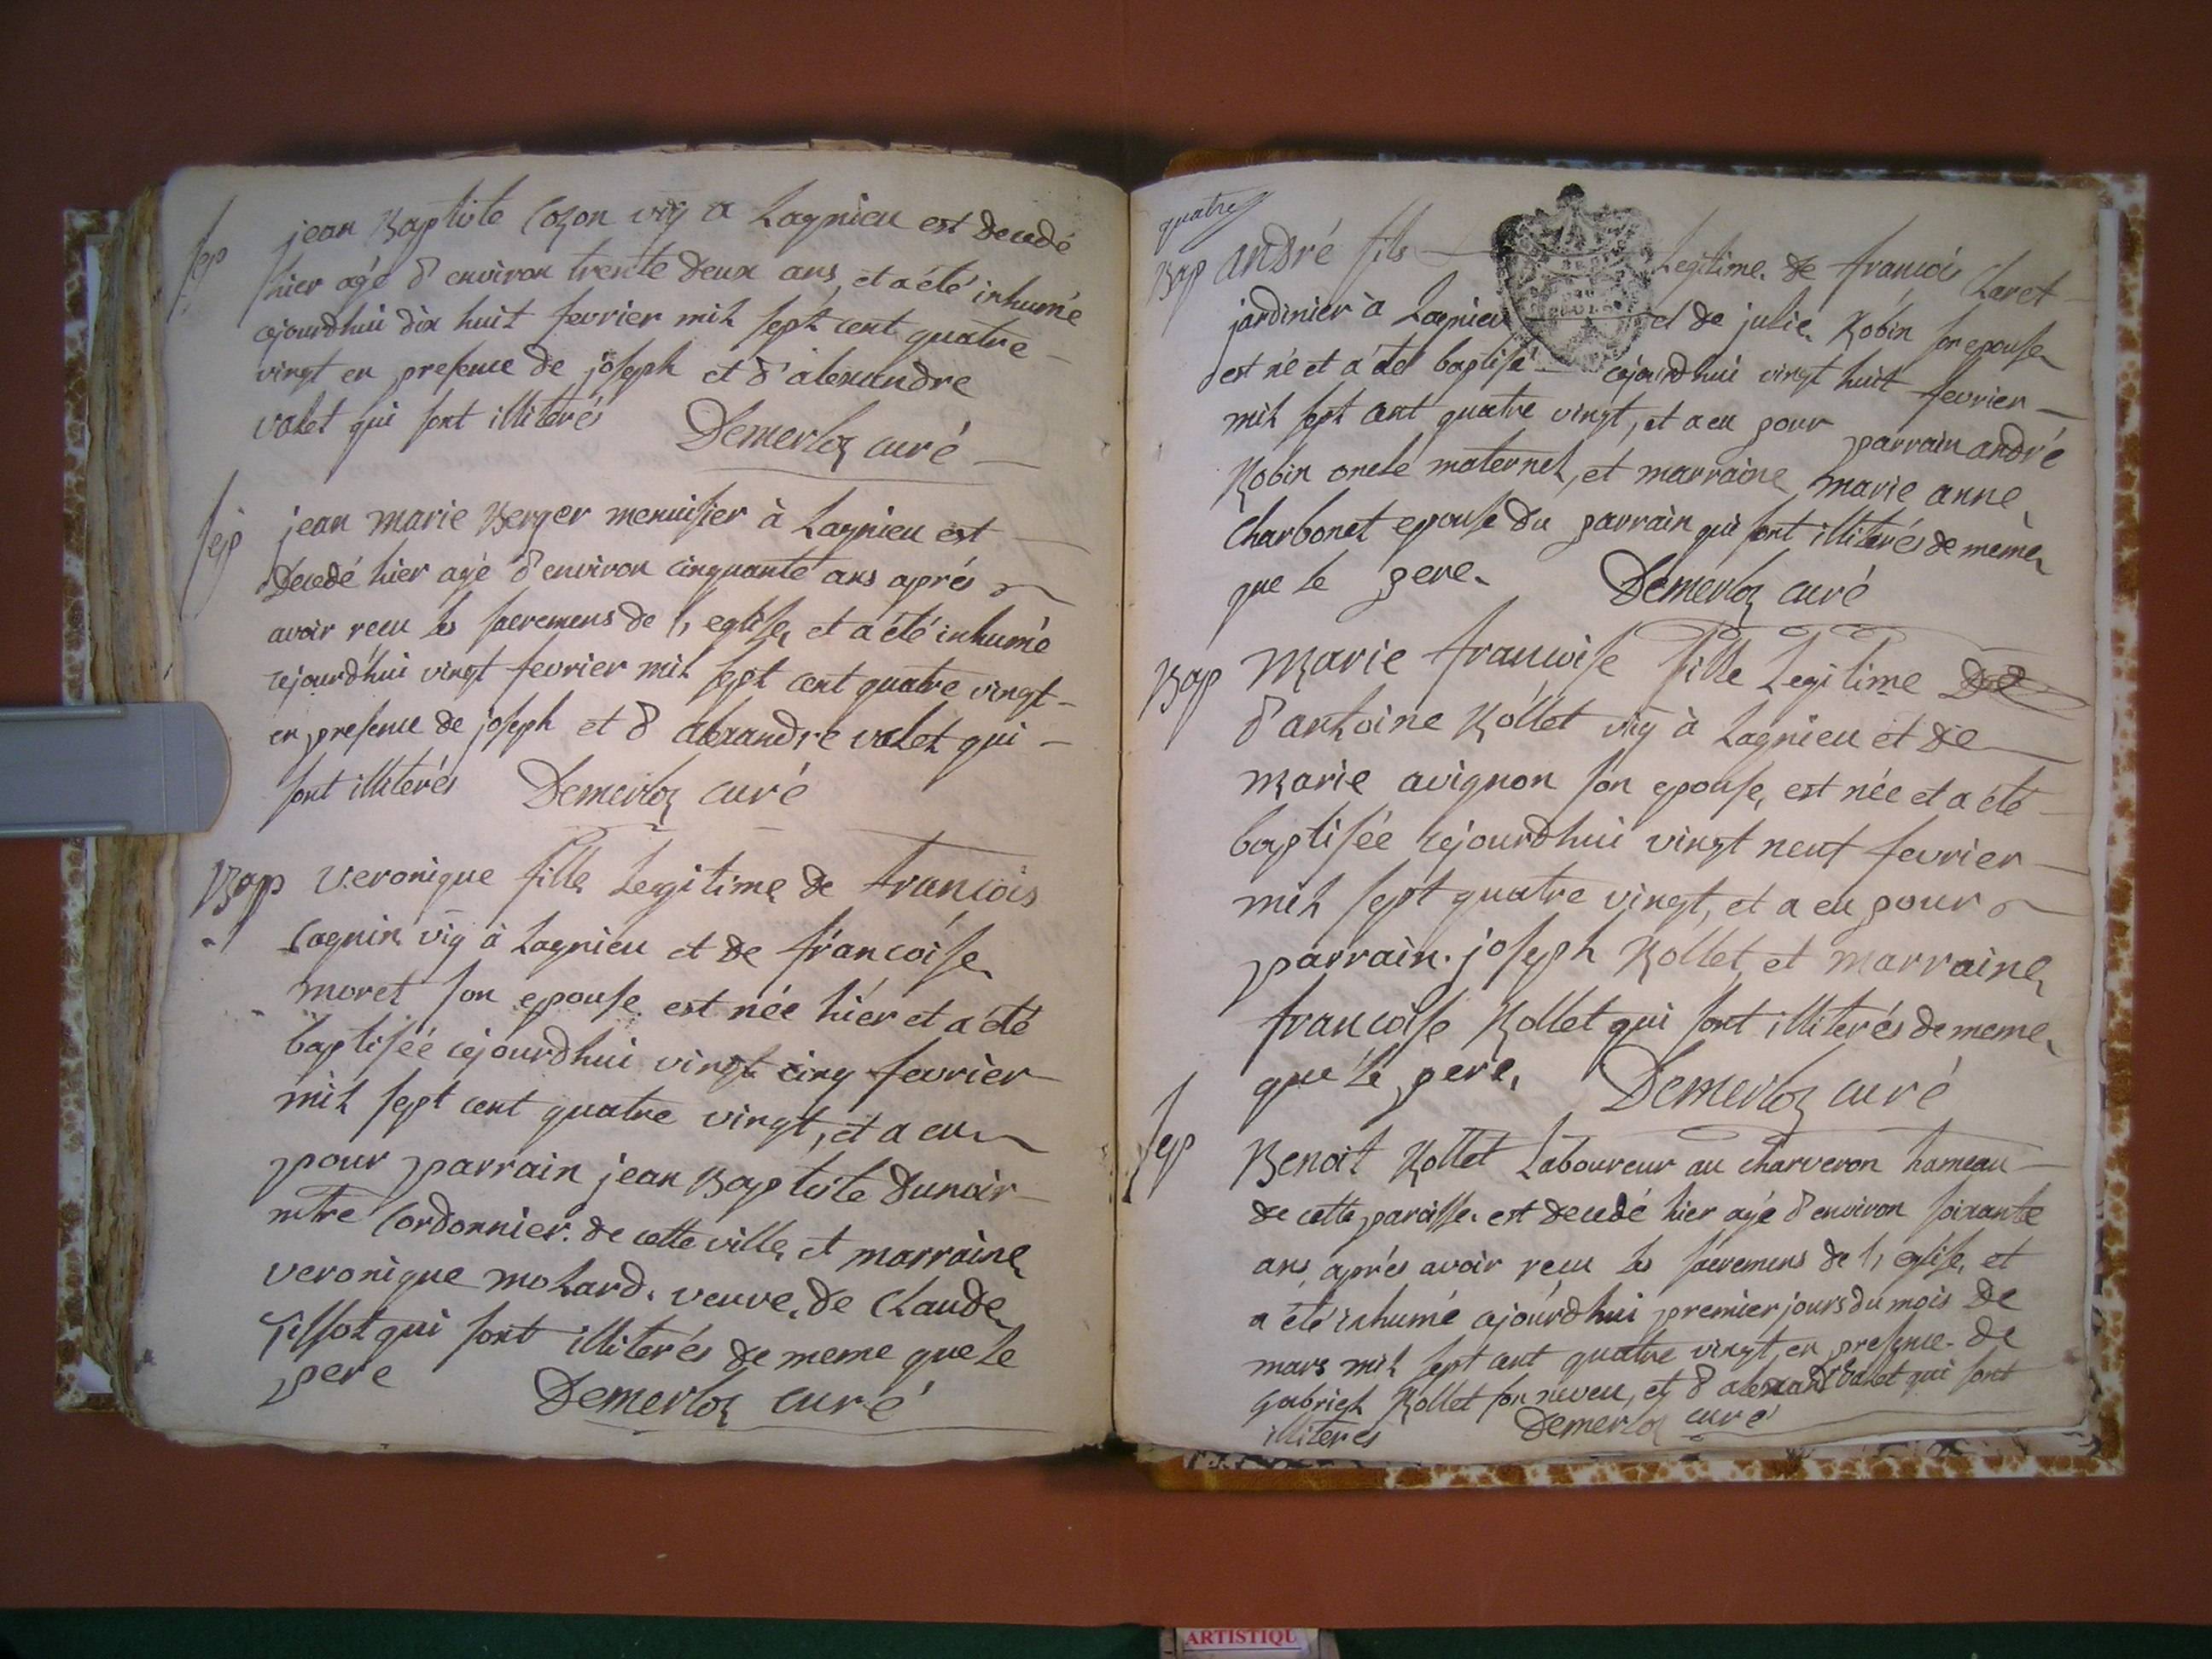 Sep jean Baptiste Cozon vig̃ a Lagnieu est decedé
hier agé d'environ trente deux ans, et a été inhumé
cejourdhui dix huit fevrier mil sept cent quatre
vingt en presence de joseph et d'alexandre
valet qui sont illiterés Demerloz curé
Sep jean marie Berger menuisier à Lagnieu est
Decedé hier agé d'environ cinquante ans aprés
avoir recu les sacremens de l'eglise, et a été inhumé
cejourd'hui vingt fevrier mil sept cent quatre vingt
en presence de joseph et d'alexandre valet qui
sont illiterés Demerloz curé
Bap Veronique fille Legitime de francois
Cagnin vig̃ à Lagnieu et de francoise
moret son epouse est née hier et a été
baptisée cejourdhui vingt cinq fevrier
mil sept cent quatre vingt, et a eu
pour parrain jean Baptiste dunoir
mtre Cordonnier de cette ville, et marraine
veronique molard veuve de Claude
Tissot qui sont illiterés de meme que le
pere Demerloz curé
quatre
Bap André fils Legitime de francois Claret
jardinier à Lagnieu et de julie Robin son epouse
est né et a été baptisé cejourdhui vingt huit fevrier
mil sept cent quatre vingt, et a eu pour parrain andré
Robin oncle maternel, et marraine marie anne
Charbonet epouse du parrain qui sont illiterés de meme
que le pere Demerloz curé
Bap Marie francoise fille Legitime de
d'antoine Rollet vig̃ à Lagnieu et de
marie avignon son epouse, est née et a été
baptisée cejourdhui vingt neuf fevrier
mil sept quatre vingt, et a eu pour
parrain joseph Rollet et marraine
francoise Rollet qui sont illiterés de meme
que le pere, Demerloz curé
Sep Benoit Rollet Laboureur au charveron hameau
de cette paroisse est decedé hier agé d'environ soixante
ans aprés avoir recu les sacremens de l'eglise, et
a été inhumé cejourdhui premier jours du mois de
mars mil sept cent quatre vingt, en presence de
gabriel Rollet son neveu, et d'alexandre valet qui sont
illiterés Demerloz curé
ARTISTIQU